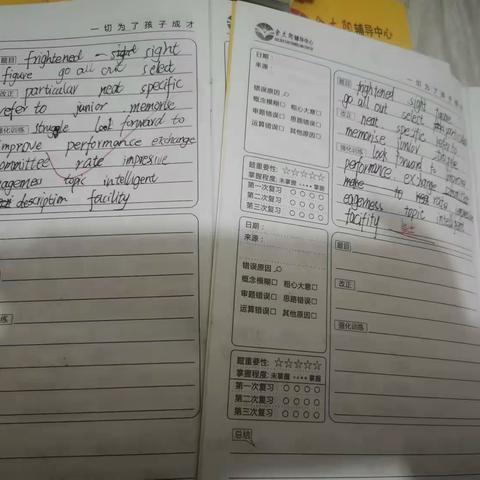 一切为了孩子成才
题目
frightened sight sight
figure go all out select
改正
particular neat specific
refer to junior memorise
强化训练
struggle look forward to
improve performance exchange
committee rate impresive
eagerness topic intelligent
description facility
金太阳辅导中心
一切为了孩子成
日期:
来源:
错误原因
概念模糊□ 粗心大意□
审题错误□ 思路错误□
运算错误□ 其他原因□
题重要性:☆☆☆☆☆
掌握程度:未掌握 掌握
第一次复习 ○ ○ ○ ○
第二次复习 ○ ○ ○ ○
第三次复习 ○ ○ ○ ○
题目
frightened sight figure
go all out select particular
改正
neat specific refer to
memorise junior struggle
强化训练
look forward to improve
performance exchange
make to rate impresive
eagerness topic intelligent
facifity
日期:
来源:
错误原因
概念模糊□ 粗心大意□
审题错误□ 思路错误□
运算错误□ 其他原因□
题目
改正
强化训练
题重要性:☆☆☆☆☆
掌握程度:未掌握 掌握
第一次复习 ○ ○ ○ ○
第二次复习 ○ ○ ○ ○
第三次复习 ○ ○ ○ ○
总结